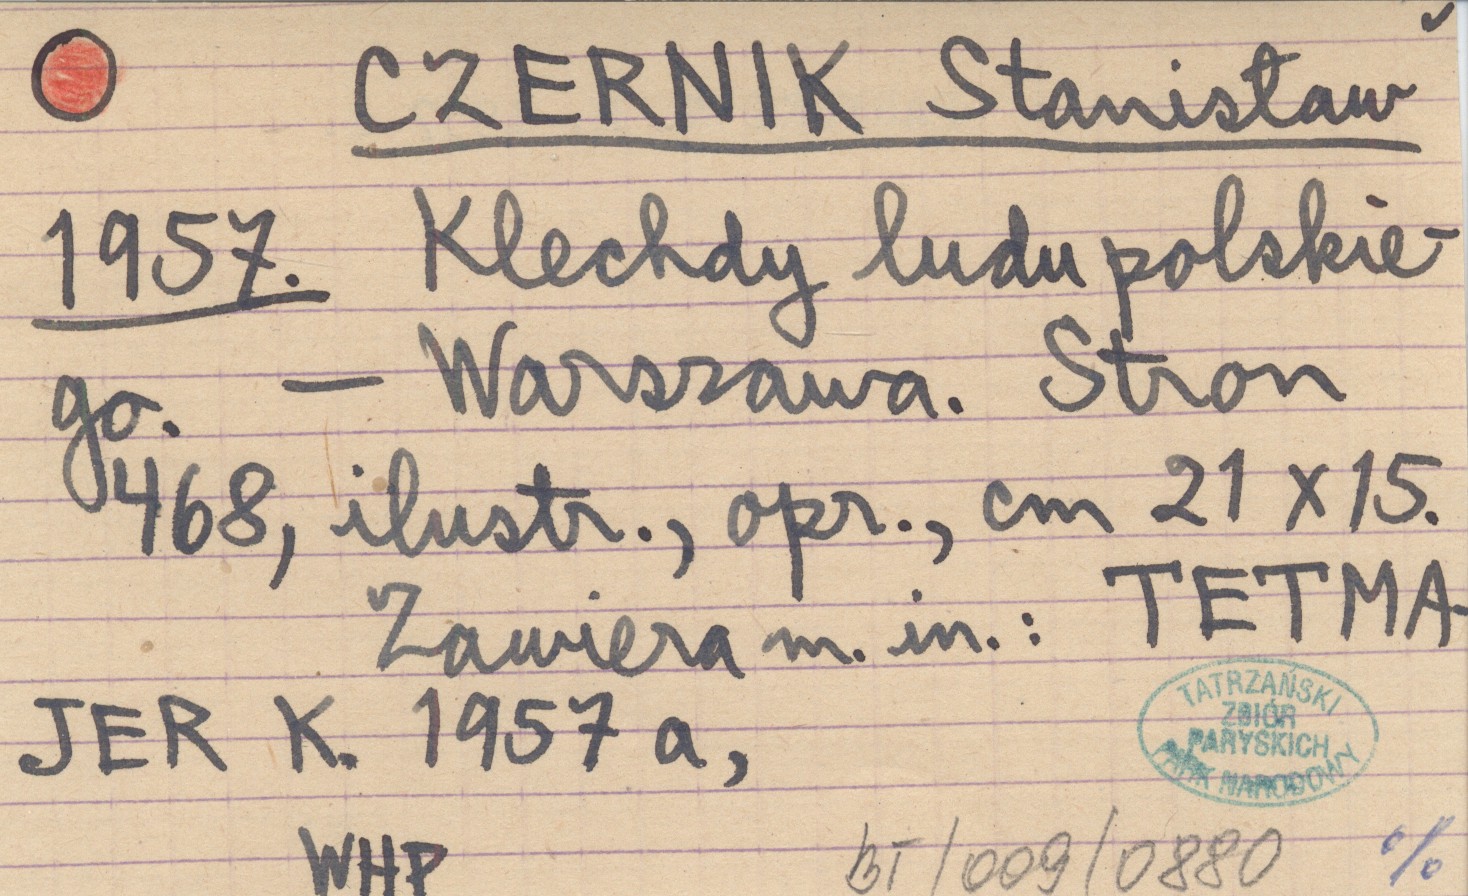 CZERNIK Stanisław
1957. Klechdy ludu polskie-
go. — Warszawa. Stron
468, ilustr., opr., cm 21 x 15.
Zawiera m. in.: TETMA-
JER K. 1957 a,
TATRZAŃSKI
ZBIÓR
PARYSKICH
PARK NARODOWY
WHP
BT/009/0880
%